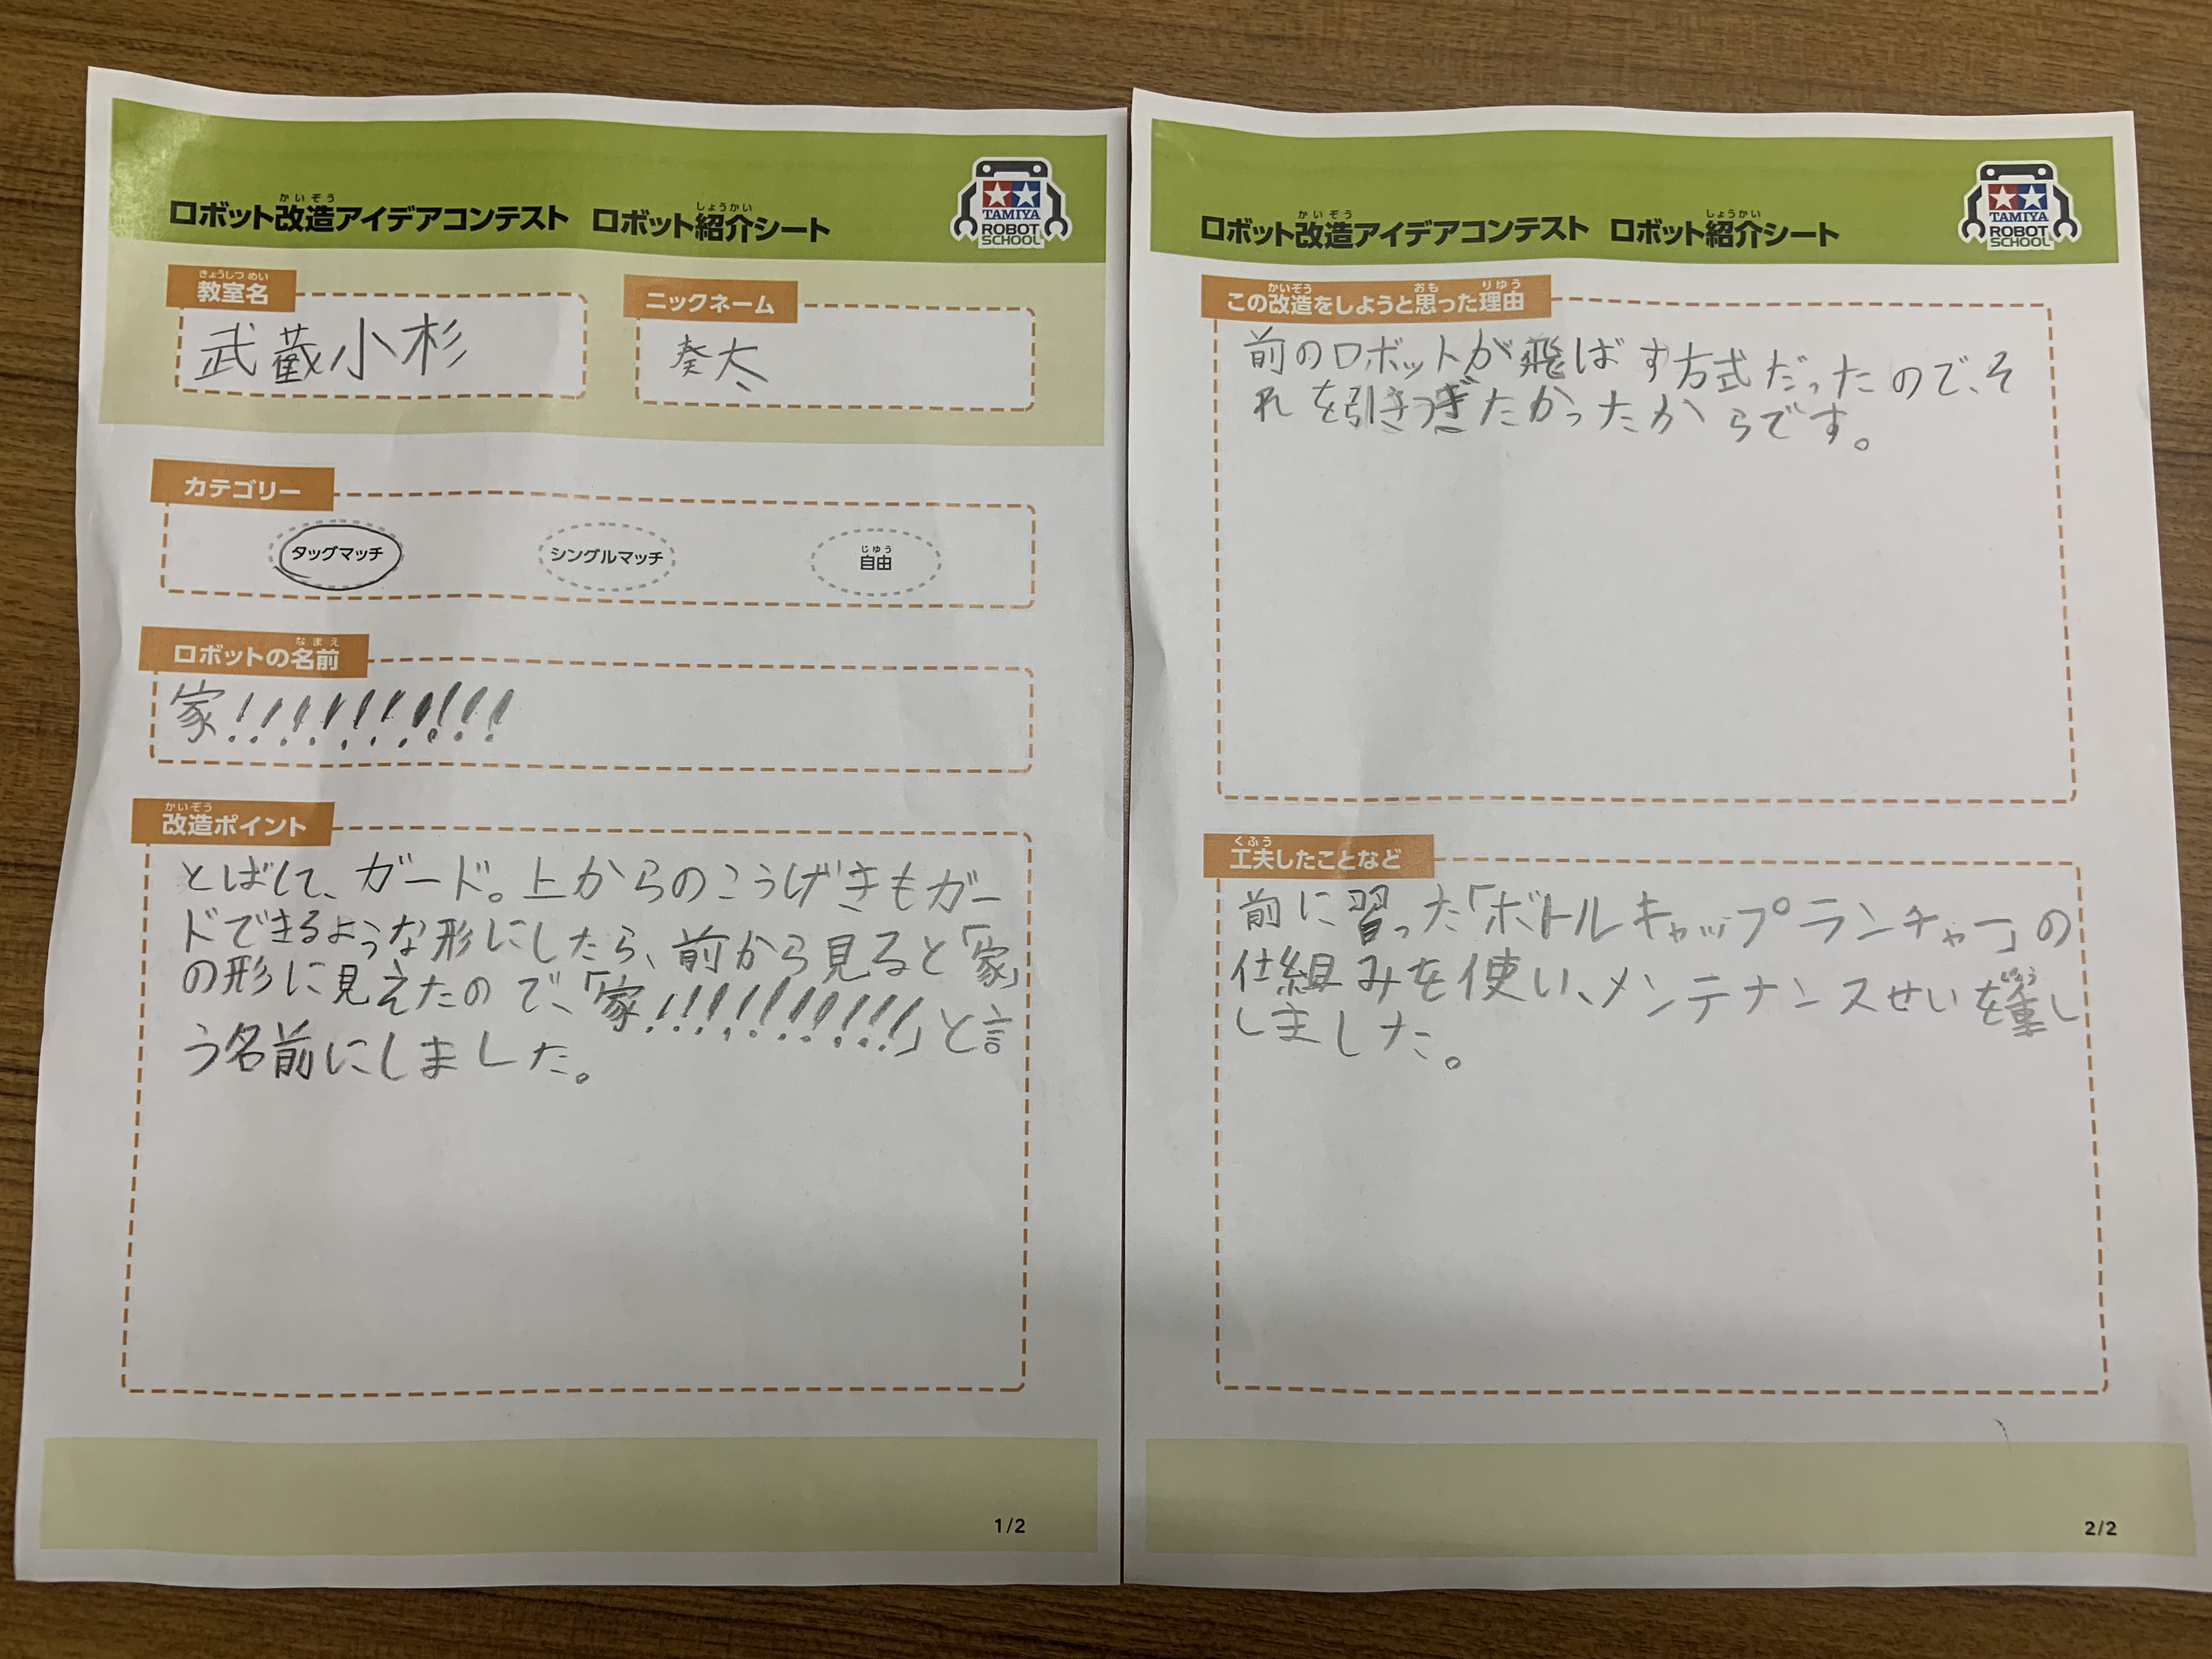 かいぞう しょうかい
ロボット改造アイデアコンテスト ロボット紹介シート
TAMIYA
ROBOT
SCHOOL
きょうしつ めい
教室名
武蔵小杉
ニックネーム
葵太
カテゴリー
タッグマッチ
シングルマッチ
じゆう
自由
なまえ
ロボットの名前
家!!!!!!!!!!
かいぞう
改造ポイント
とばして、ガード。上からのこうげきもガー
ドできるような形にしたら、前から見ると「家」
の形に見えたので、「家!!!!!!!!!!!」と言
う名前にしました。
1/2
かいぞう しょうかい
ロボット改造アイデアコンテスト ロボット紹介シート
TAMIYA
ROBOT
SCHOOL
かいぞう おも りゆう
この改造をしようと思った理由
前のロボットが飛ばす方式だったので、そ
れを引きつぎたかったからです。
くふう
工夫したことなど
前に習った「ボトルキャップランチャー」の
仕組みを使い、メンテナンスせいを重し
しました。
2/2